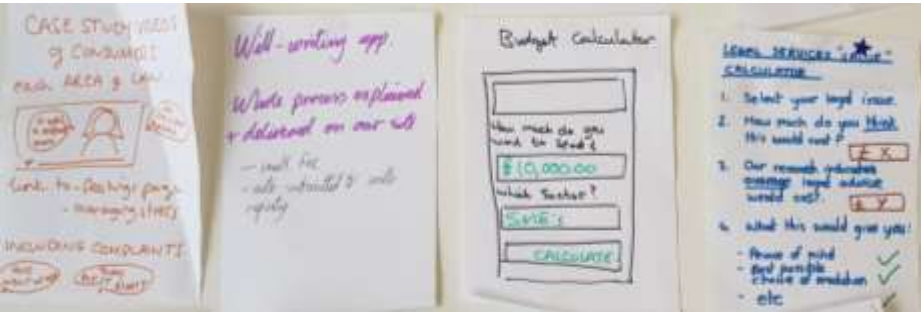 CASE STUDY VIDEOS
of CONSUMERS
each AREA of LAW
Link to feelings page
- managing stress
INCLUDING COMPLAINTS
Will-writing app.
Whole process explained
+ delivered on our site
- small fee
Budget Calculator
How much do you
want to spend?
£10,000.00
Which Sector?
SME's
CALCULATE
LEGAL SERVICES "VALUE"
CALCULATOR
1. Select your legal issue.
2. How much do you think
this would cost?
£ X
3. Our research indicates
average legal advice
would cost.
£ Y
4. What this would give you:
- Peace of mind
- Best possible
chance of resolution
- etc